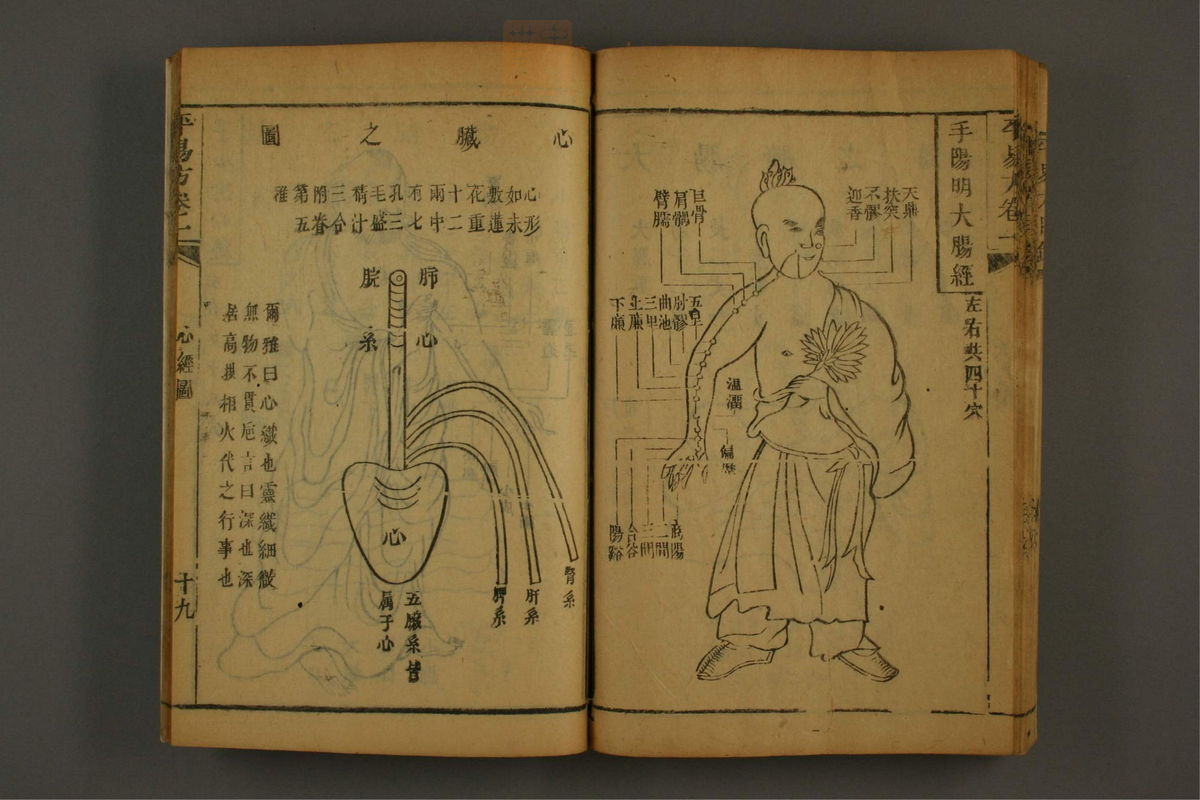 手陽明大腸經
左右共四十穴
天鼎
扶突
禾髎
迎香
巨骨
肩髃
臂臑
五里
肘髎
曲池
三里
上廉
下廉
溫溜
偏歷
商陽
二間
三間
合谷
陽谿
心臟之圖
心形
如未
數蓮
花重
十二
兩中
有七
孔三
毛盛
精汁
三合
附脊
第五
椎
肺心
脘系
心
腎系
肝系
脾系
五臟系皆
屬于心
爾雅曰心纖也靈纖細微
無物不貫巵言曰深也深
居高拱相火代之行事也
平易方卷二
心經圖
十九